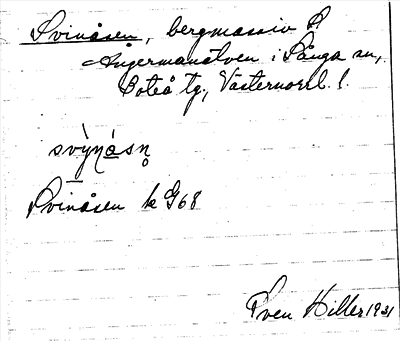 Svinåsen, bergmassiv S.
Ångermanälven i Sånga sn,
Boteå tg., Västernorrl. l.
svỳnásn̥
Svinåsen k G68
Sven Hiller 1931